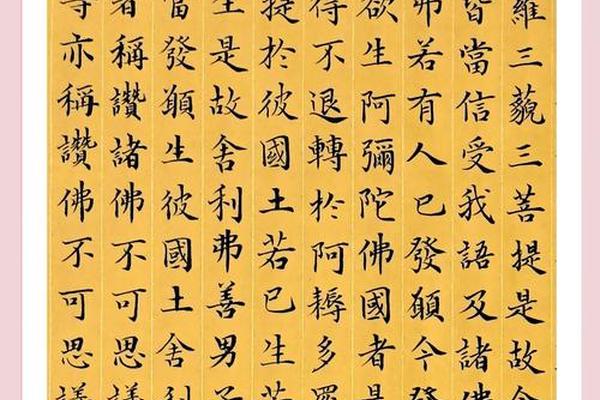 羅三藐三菩提是故舍
皆當信受我語及諸佛
弗若有人已發願今發
欲生阿彌陀佛國者是
得不退轉於阿耨多羅
提於彼國土若已生若
生是故舍利弗善男子
當發願生彼國土舍利
者稱讚諸佛不可思議
等亦稱讚佛不可思議